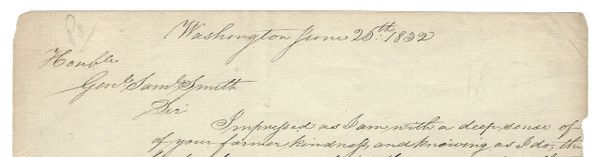 Washington June 26th. 1832
Honble
Genl. Saml. Smith
Sir
Impressed as I am, with a deep sense of
of your former kindness, and knowing as I do, the